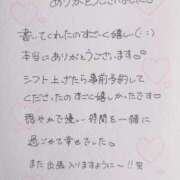 ありがとうございました♡
書してくれたのすごく嬉しい(: :)
本当にありがとうございます♡
シフト上げたら事前予約して
くださったのすごく嬉しかったです
穏やかで濃い時間を一緒に
過ごせて幸せでした。
また出勤入りますように〜!!笑